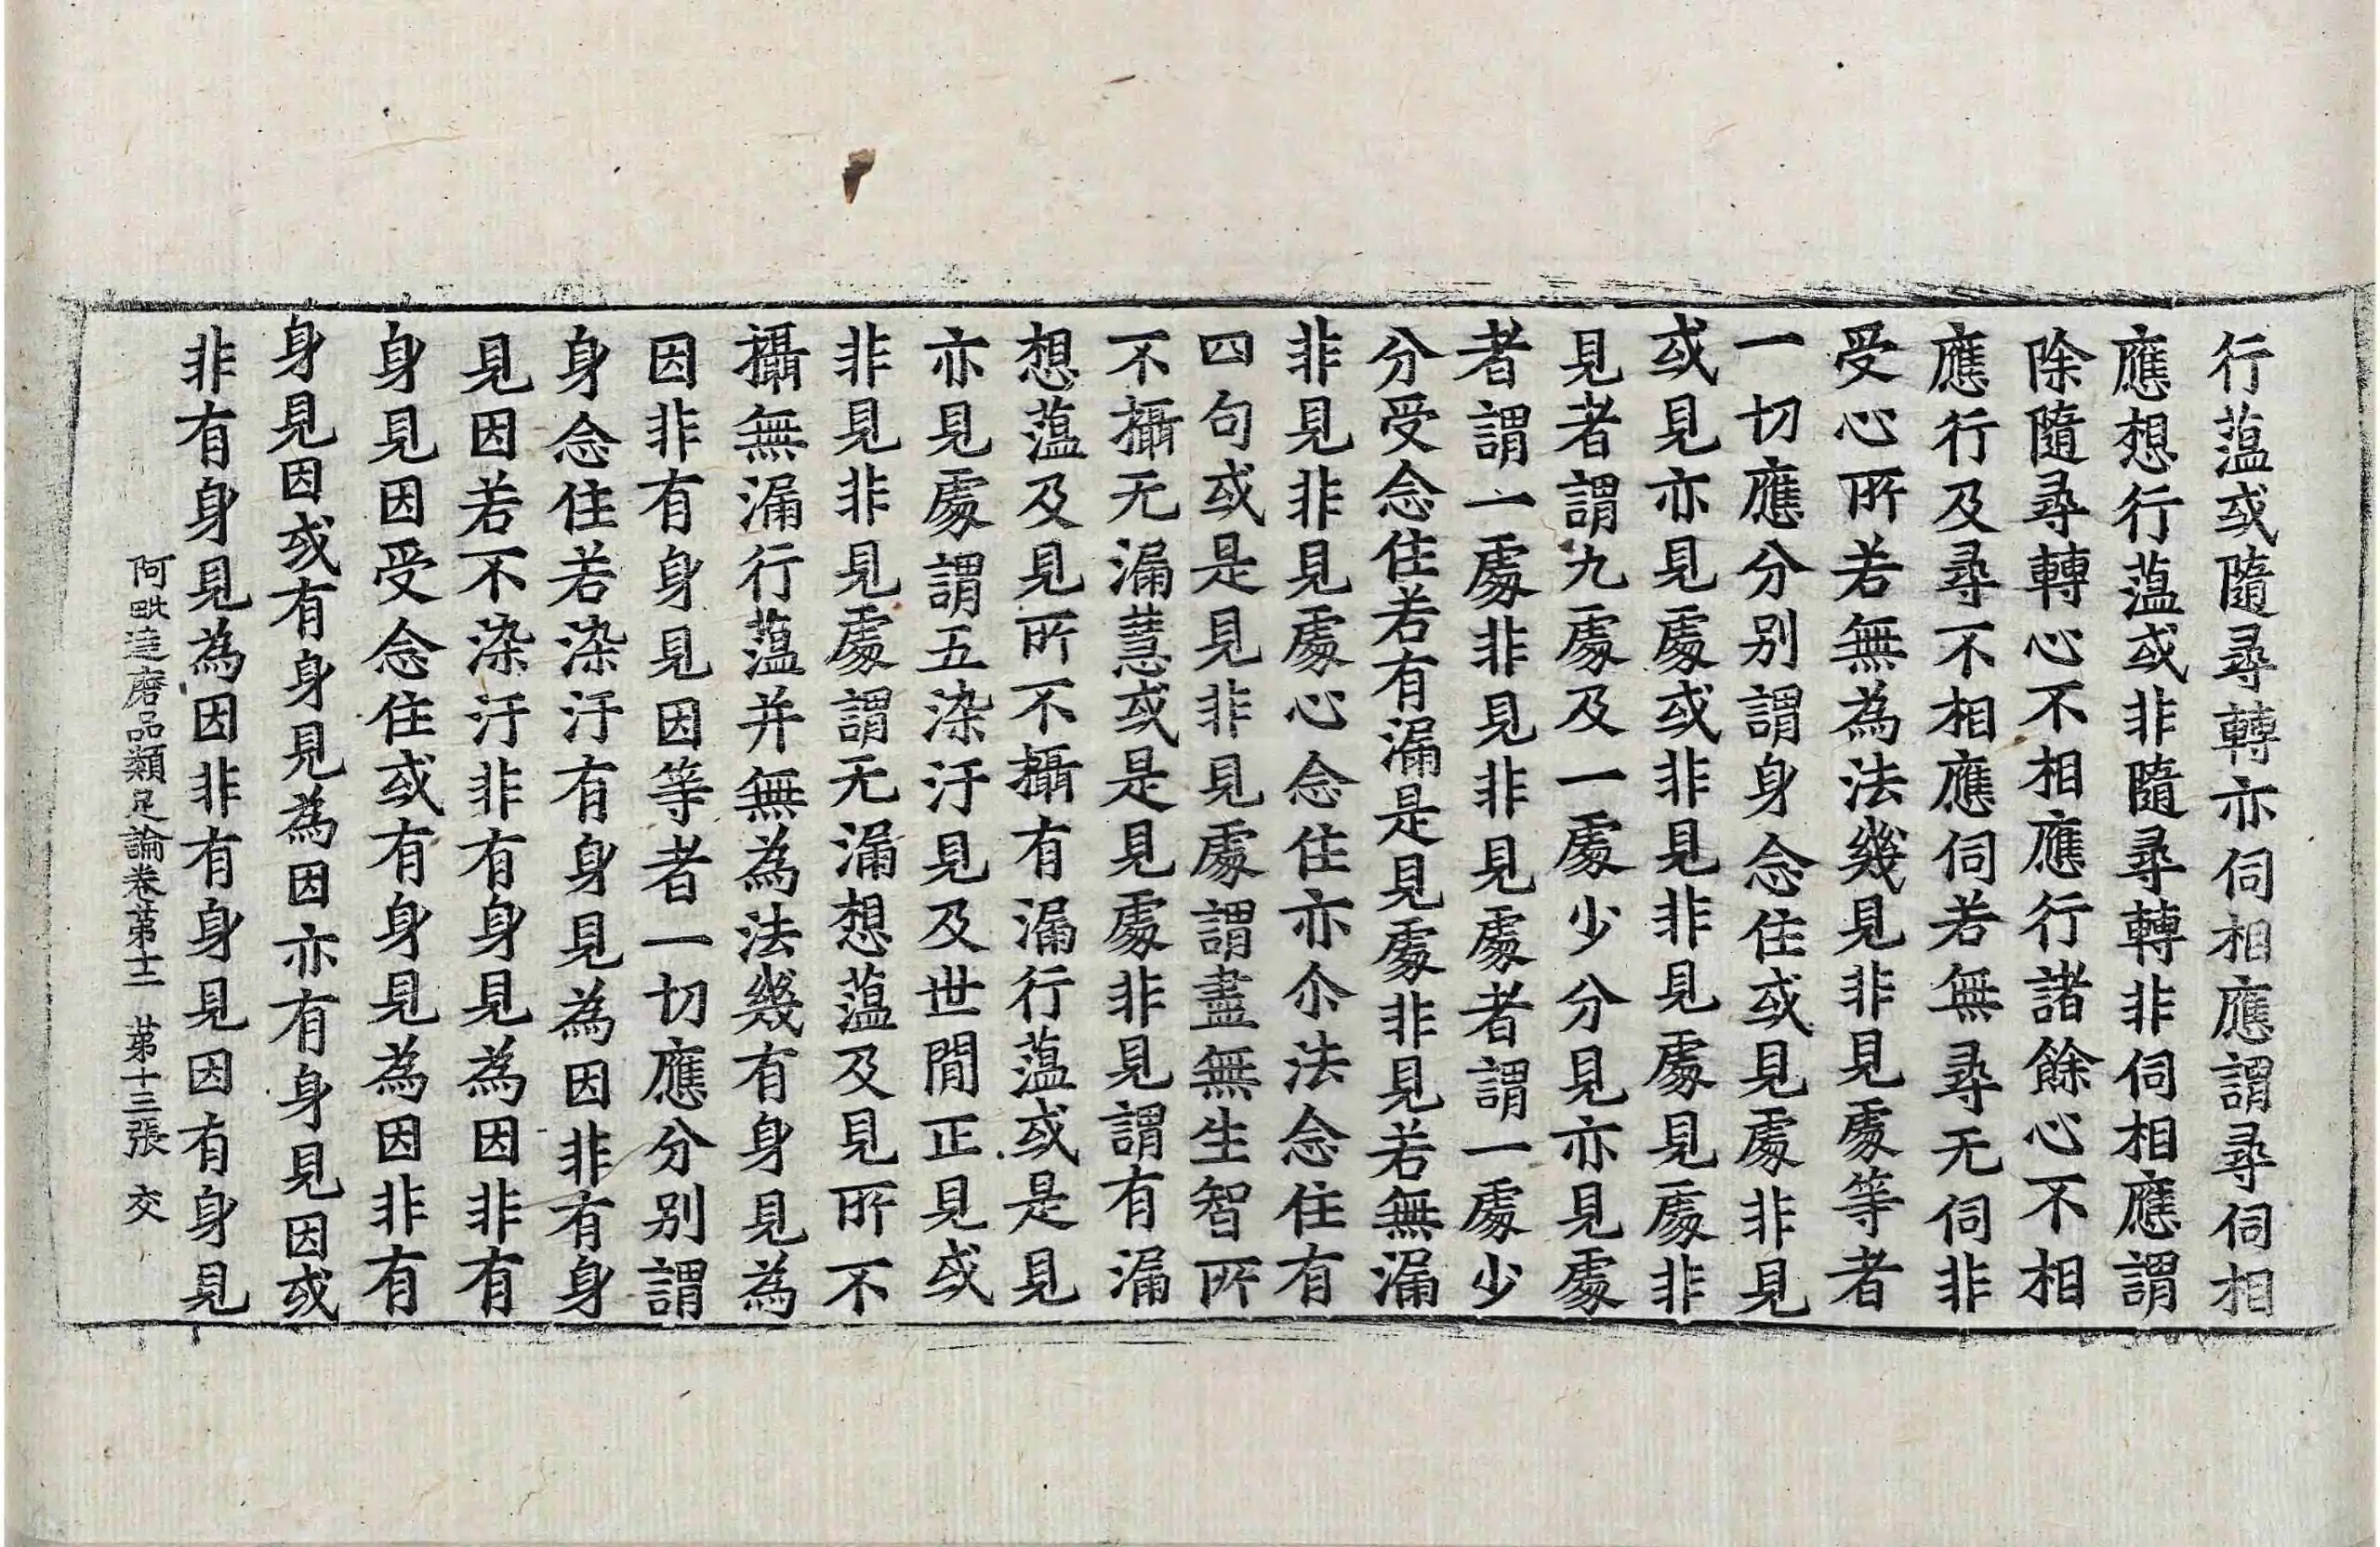 行蕰或隨尋轉亦伺相應謂尋伺相
應想行蕰或非隨尋轉非伺相應謂
除隨尋轉心不相應行諸餘心不相
應行及尋不相應伺若無尋无伺非
受心所若無為法幾見非見處等者
一切應分別謂身念住或見處非見
或見亦見處或非見非見處見處非
見者謂九處及一處少分見亦見處
者謂一處非見非見處者謂一處少
分受念住若有漏是見處非見若無漏
非見非見處心念住亦尒法念住有
四句或是見非見處謂盡無生智所
不攝无漏慧或是見處非見謂有漏
想蕰及見所不攝有漏行蕰或是見
亦見處謂五染汙見及世間正見或
非見非見處謂无漏想蕰及見所不
攝無漏行蕰并無為法幾有身見為
因非有身見因等者一切應分別謂
身念住若染汙有身見為因非有身
見因若不染汙非有身見為因非有
身見因受念住或有身見為因非有
身見因或有身見為因亦有身見因或
非有身見為因非有身見因有身見
阿毗達磨品類足論卷第十二 苐十三張 交